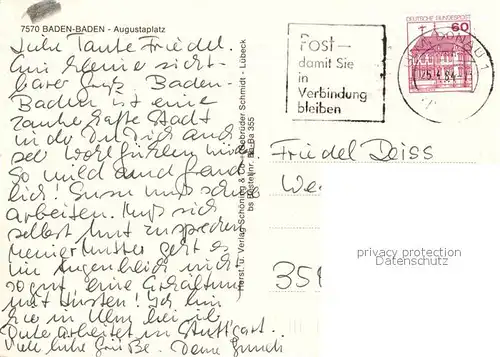 7570 BADEN-BADEN - Augustaplatz
Liebe Tante Friedel.
Ein kleine sicht-
barer Gruß Baden-
Baden ist eine
zauberhafte Stadt
in der Du Dich auch
sehr wohlfühlen würdest.
So mild und freund
lich! Susan muß schon
arbeiten. Muß sich
selbst Mut zusprechen
Meiner Mutter geht es
im Augenblick nicht
so gut, eine Erkältung
mit Husten! Ich bin
hier in Ulm bei
Dute arbeitet in Stuttgart.
Viele liebe Grüße. Deine
Horst. u. Verlag Schöning & Co + Gebrüder Schmidt - Lübeck
bs Bestellnr. Ba-Ba 355
Post —
damit Sie
in
Verbindung
bleiben
DEUTSCHE BUNDESPOST
60
DONAU 1
84
Friedel Deiss
We
35
privacy protection
Datenschutz